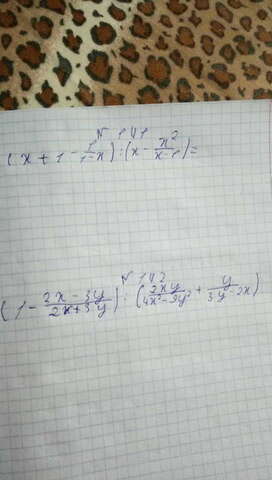 № 141
(x + 1 - 1/(1-x)) : (x - x²/(x-1)) =
№ 142
(1 - (2x - 3y)/(2x + 3y)) : (2xy/(4x² - 9y²) + y/(3y - 2x))